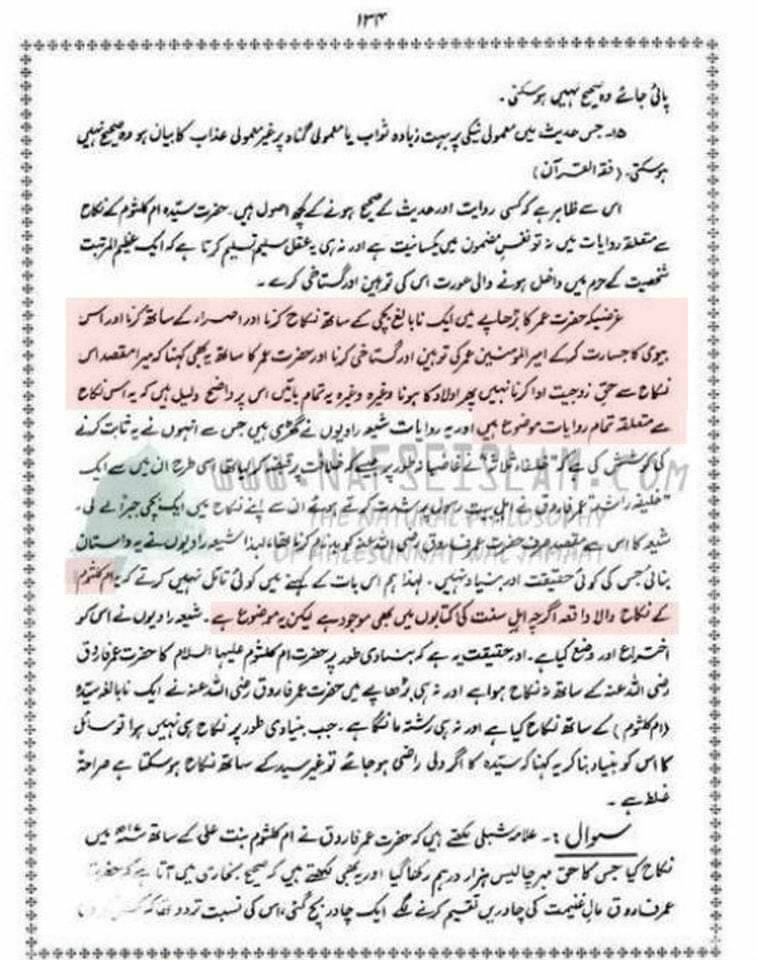 ۱۳۴
پائی جائے وہ صحیح نہیں ہوسکتی۔
۱۵۔ جس حدیث میں معمولی نیکی پر بہت زیادہ ثواب یا معمولی گناہ پر غیر معمولی عذاب کا بیان ہو وہ صحیح نہیں
ہوسکتی۔ (فقہ القرآن)
اس سے ظاہر ہے کہ کسی روایت اور حدیث کے صحیح ہونے کے کچھ اصول ہیں۔ حضرت سیّدہ ام کلثوم کے نکاح
سے متعلقہ روایات میں نہ تو نفسِ مضمون میں یکسانیت ہے اور نہ ہی یہ عقل سلیم تسلیم کرتا ہے کہ ایک عظیم المرتبت
شخصیت کے حرم میں داخل ہونے والی عورت اس کی توہین اور گستاخی کرے۔
غرضیکہ حضرت عمر کا بڑھاپے میں ایک نابالغ بچی کے ساتھ نکاح کرنا اور اصرار کے ساتھ کرنا اور اس
بیوی کا جسارت کرکے امیر المؤمنین عمر کی توہین اور گستاخی کرنا اور حضرت عمر کا ساتھ یہ بھی کہنا کہ میرا مقصد اس
نکاح سے حقِ زوجیت ادا کرنا نہیں پھر اولاد کا ہونا وغیرہ وغیرہ یہ تمام باتیں اس پر واضح دلیل ہیں کہ یہ اس نکاح
سے متعلقہ تمام روایات موضوع ہیں اور یہ روایات شیعہ راویوں نے گھڑی ہیں جس سے انہوں نے یہ ثابت کرنے
کی کوشش کی ہے کہ "خلفاء ثلاثہ" نے غاصبانہ طور پر جیسے کہ خلافت پر قبضہ کرلیا تھا اسی طرح ان میں سے ایک
"خلیفہ راشد" عمر فاروق نے اہلِ بیت رسول پر شدت کرتے ہوئے ان سے اپنے نکاح میں ایک بچی جبراً لے لی۔
شیعہ کا اس سے مقصد صرف حضرت عمر فاروق رضی اللہ عنہ کو بدنام کرنا تھا، لہذا شیعہ راویوں نے یہ داستان
بنائی جس کی کوئی حقیقت اور بنیاد نہیں۔ لہذا ہم اس بات کے کہنے میں کوئی تامل نہیں کرتے کہ یہ ام کلثوم
کے نکاح والا واقعہ اگرچہ اہلِ سنت کی کتابوں میں بھی موجود ہے لیکن یہ موضوع ہے۔ شیعہ راویوں نے اس کو
اختراع اور وضع کیا ہے۔ اور حقیقت یہ ہے کہ بنیادی طور پر حضرت ام کلثوم علیہا السلام کا حضرت عمر فاروق
رضی اللہ عنہ کے ساتھ نہ نکاح ہوا ہے اور نہ ہی بڑھاپے میں حضرت عمر فاروق رضی اللہ عنہ نے ایک نابالغہ سیّدہ
(ام کلثوم) کے ساتھ نکاح کیا ہے اور نہ ہی رشتہ مانگا ہے۔ جب بنیادی طور پر نکاح ہی نہیں ہوا تو سائل
کا اس کو بنیاد بنا کر یہ کہنا کہ سیّدہ کا اگر ولی راضی ہوجائے تو غیر سید کے ساتھ نکاح ہوسکتا ہے صراحۃً
غلط ہے۔
سوال:۔ علامہ شبلی لکھتے ہیں کہ حضرت عمر فاروق نے ام کلثوم بنت علی کے ساتھ میں
نکاح کیا جس کا حق مہر چالیس ہزار درہم رکھا گیا اور یہ بھی لکھتے ہیں کہ صحیح بخاری میں آتا ہے کہ حضرت
عمر فاروق مالِ غنیمت کی چادریں تقسیم کرنے لگے ایک چادر بچ گئی، اس کی نسبت تردد تھا کہ
WWW.NAFSEISLAM.COM
THE NATURAL PHILOSOPHY
OF AHLESUNNAT WAL JAMAAT